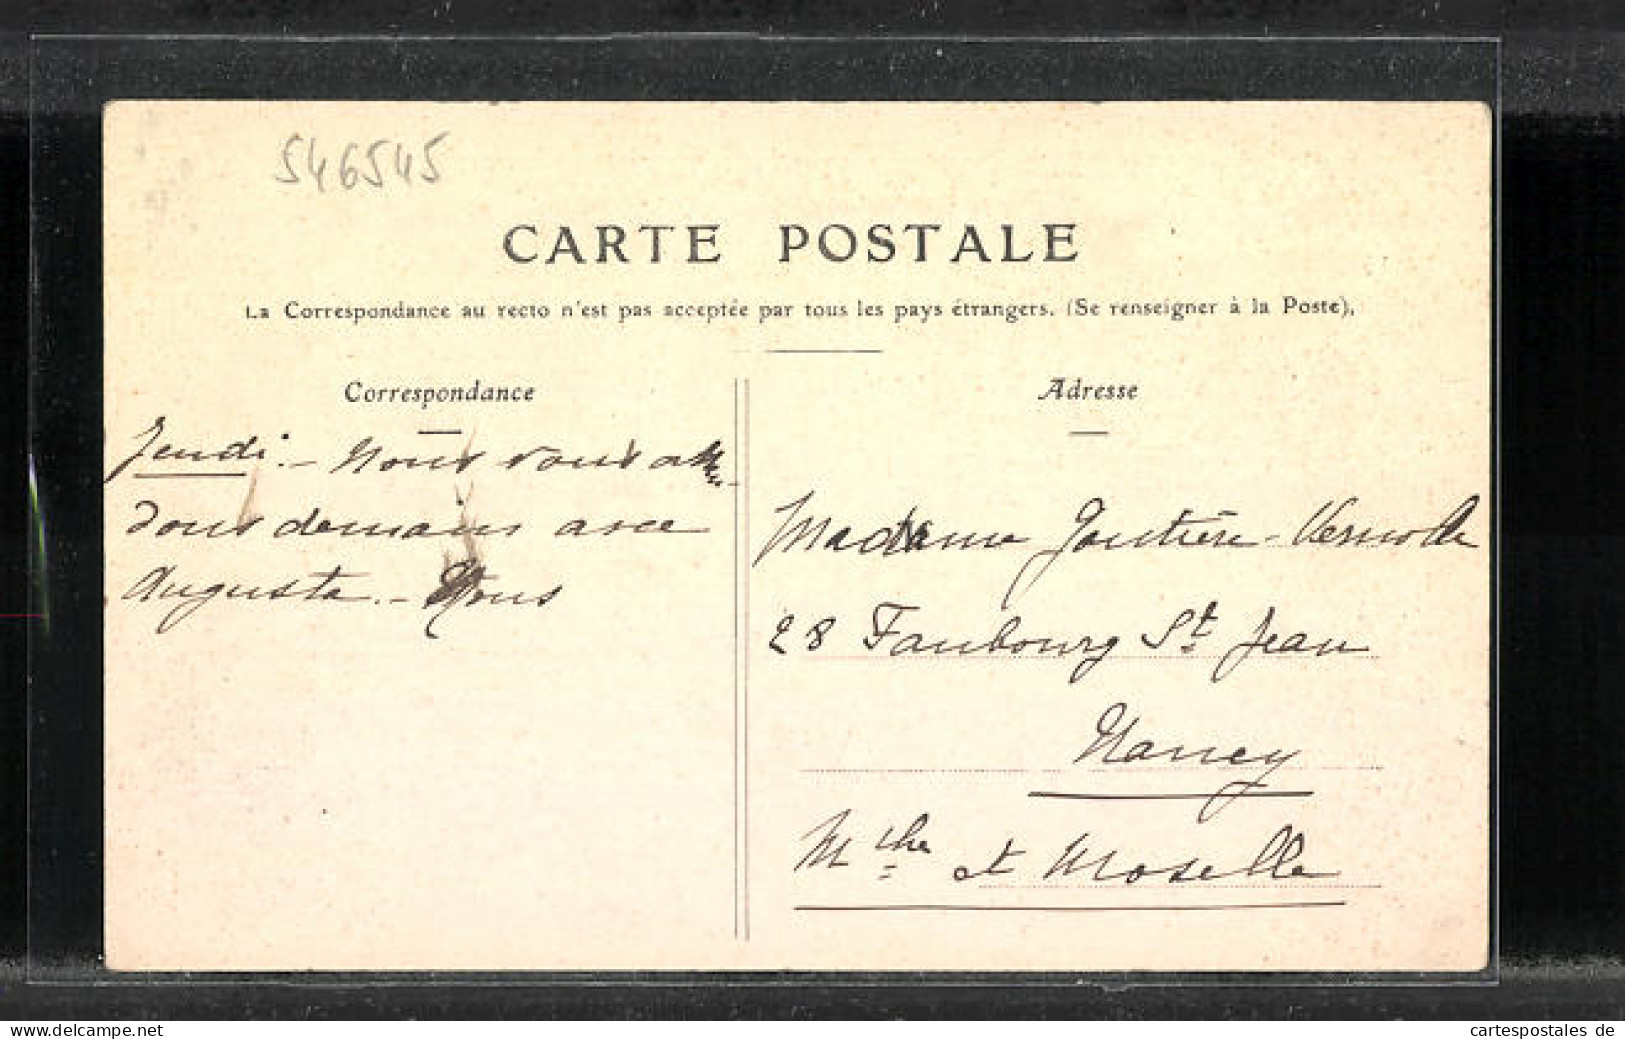 546545
CARTE POSTALE
La Correspondance au recto n'est pas acceptée par tous les pays étrangers. (Se renseigner à la Poste).
Correspondance
Jeudi.- Nous vous atten-
dons demain avec
Auguste.- Nous
Adresse
Madame Gautière-Vernolle
28 Faubourg St Jean
Nancy
Mthe et Moselle
www.delcampe.net
cartespostales de